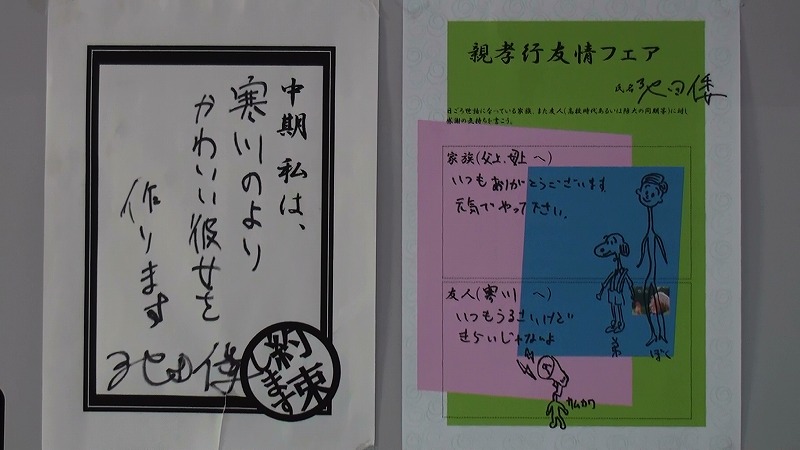 中期 私は、
寒川のより
かわいい彼女を
作ります
池田 倭
約束
します
親孝行友情フェア
氏名 池田倭
日ごろ世話になっている家族、また友人(高校時代あるいは陸大の同期等)に対し
感謝の気持ちを書こう。
家族(父上、母上 へ)
いつもありがとうございます
元気でやって下さい。
友人(寒川 へ)
いつもうるさいけど
きらいじゃないよ
弟
ぼく
カムカワ